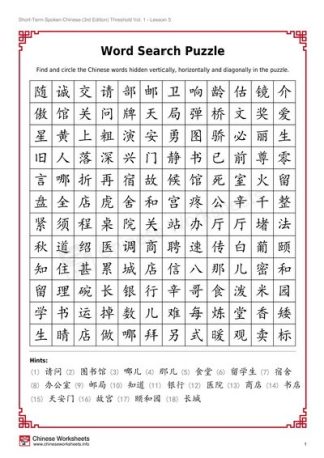 Short-Term Spoken Chinese (3rd Edition) Threshold Vol. 1 - Lesson 5
Word Search Puzzle
Find and circle the Chinese words hidden vertically, horizontally and diagonally in the puzzle.
随 诚 交 请 部 邮 卫 响 龄 估 镜 介
傲 馆 关 问 牌 天 局 弹 桥 文 奖 爱
星 黄 上 粗 演 安 勇 图 骄 必 丽 生
旧 人 落 深 兴 门 静 书 已 前 尊 零
言 哪 折 再 宿 故 候 馆 死 室 火 留
盘 全 店 虎 舍 和 宫 疼 公 辛 千 整
紧 须 程 桌 院 关 站 办 厅 厅 堵 法
秋 道 绍 医 调 商 聘 速 传 白 葡 颐
知 住 甚 累 城 店 信 八 那 儿 密 和
留 理 碗 长 银 行 辛 哥 食 泼 米 园
学 书 运 掉 数 儿 难 每 炼 堂 香 矮
生 晴 店 做 哪 拜 另 式 暖 观 卖 标
Hints:
(1) 请问 (2) 图书馆 (3) 哪儿 (4) 那儿 (5) 食堂 (6) 留学生 (7) 宿舍
(8) 办公室 (9) 邮局 (10) 知道 (11) 银行 (12) 医院 (13) 商店 (14) 书店
(15) 天安门 (16) 故宫 (17) 颐和园 (18) 长城
Chinese Worksheets
www.chineseworksheets.info
1